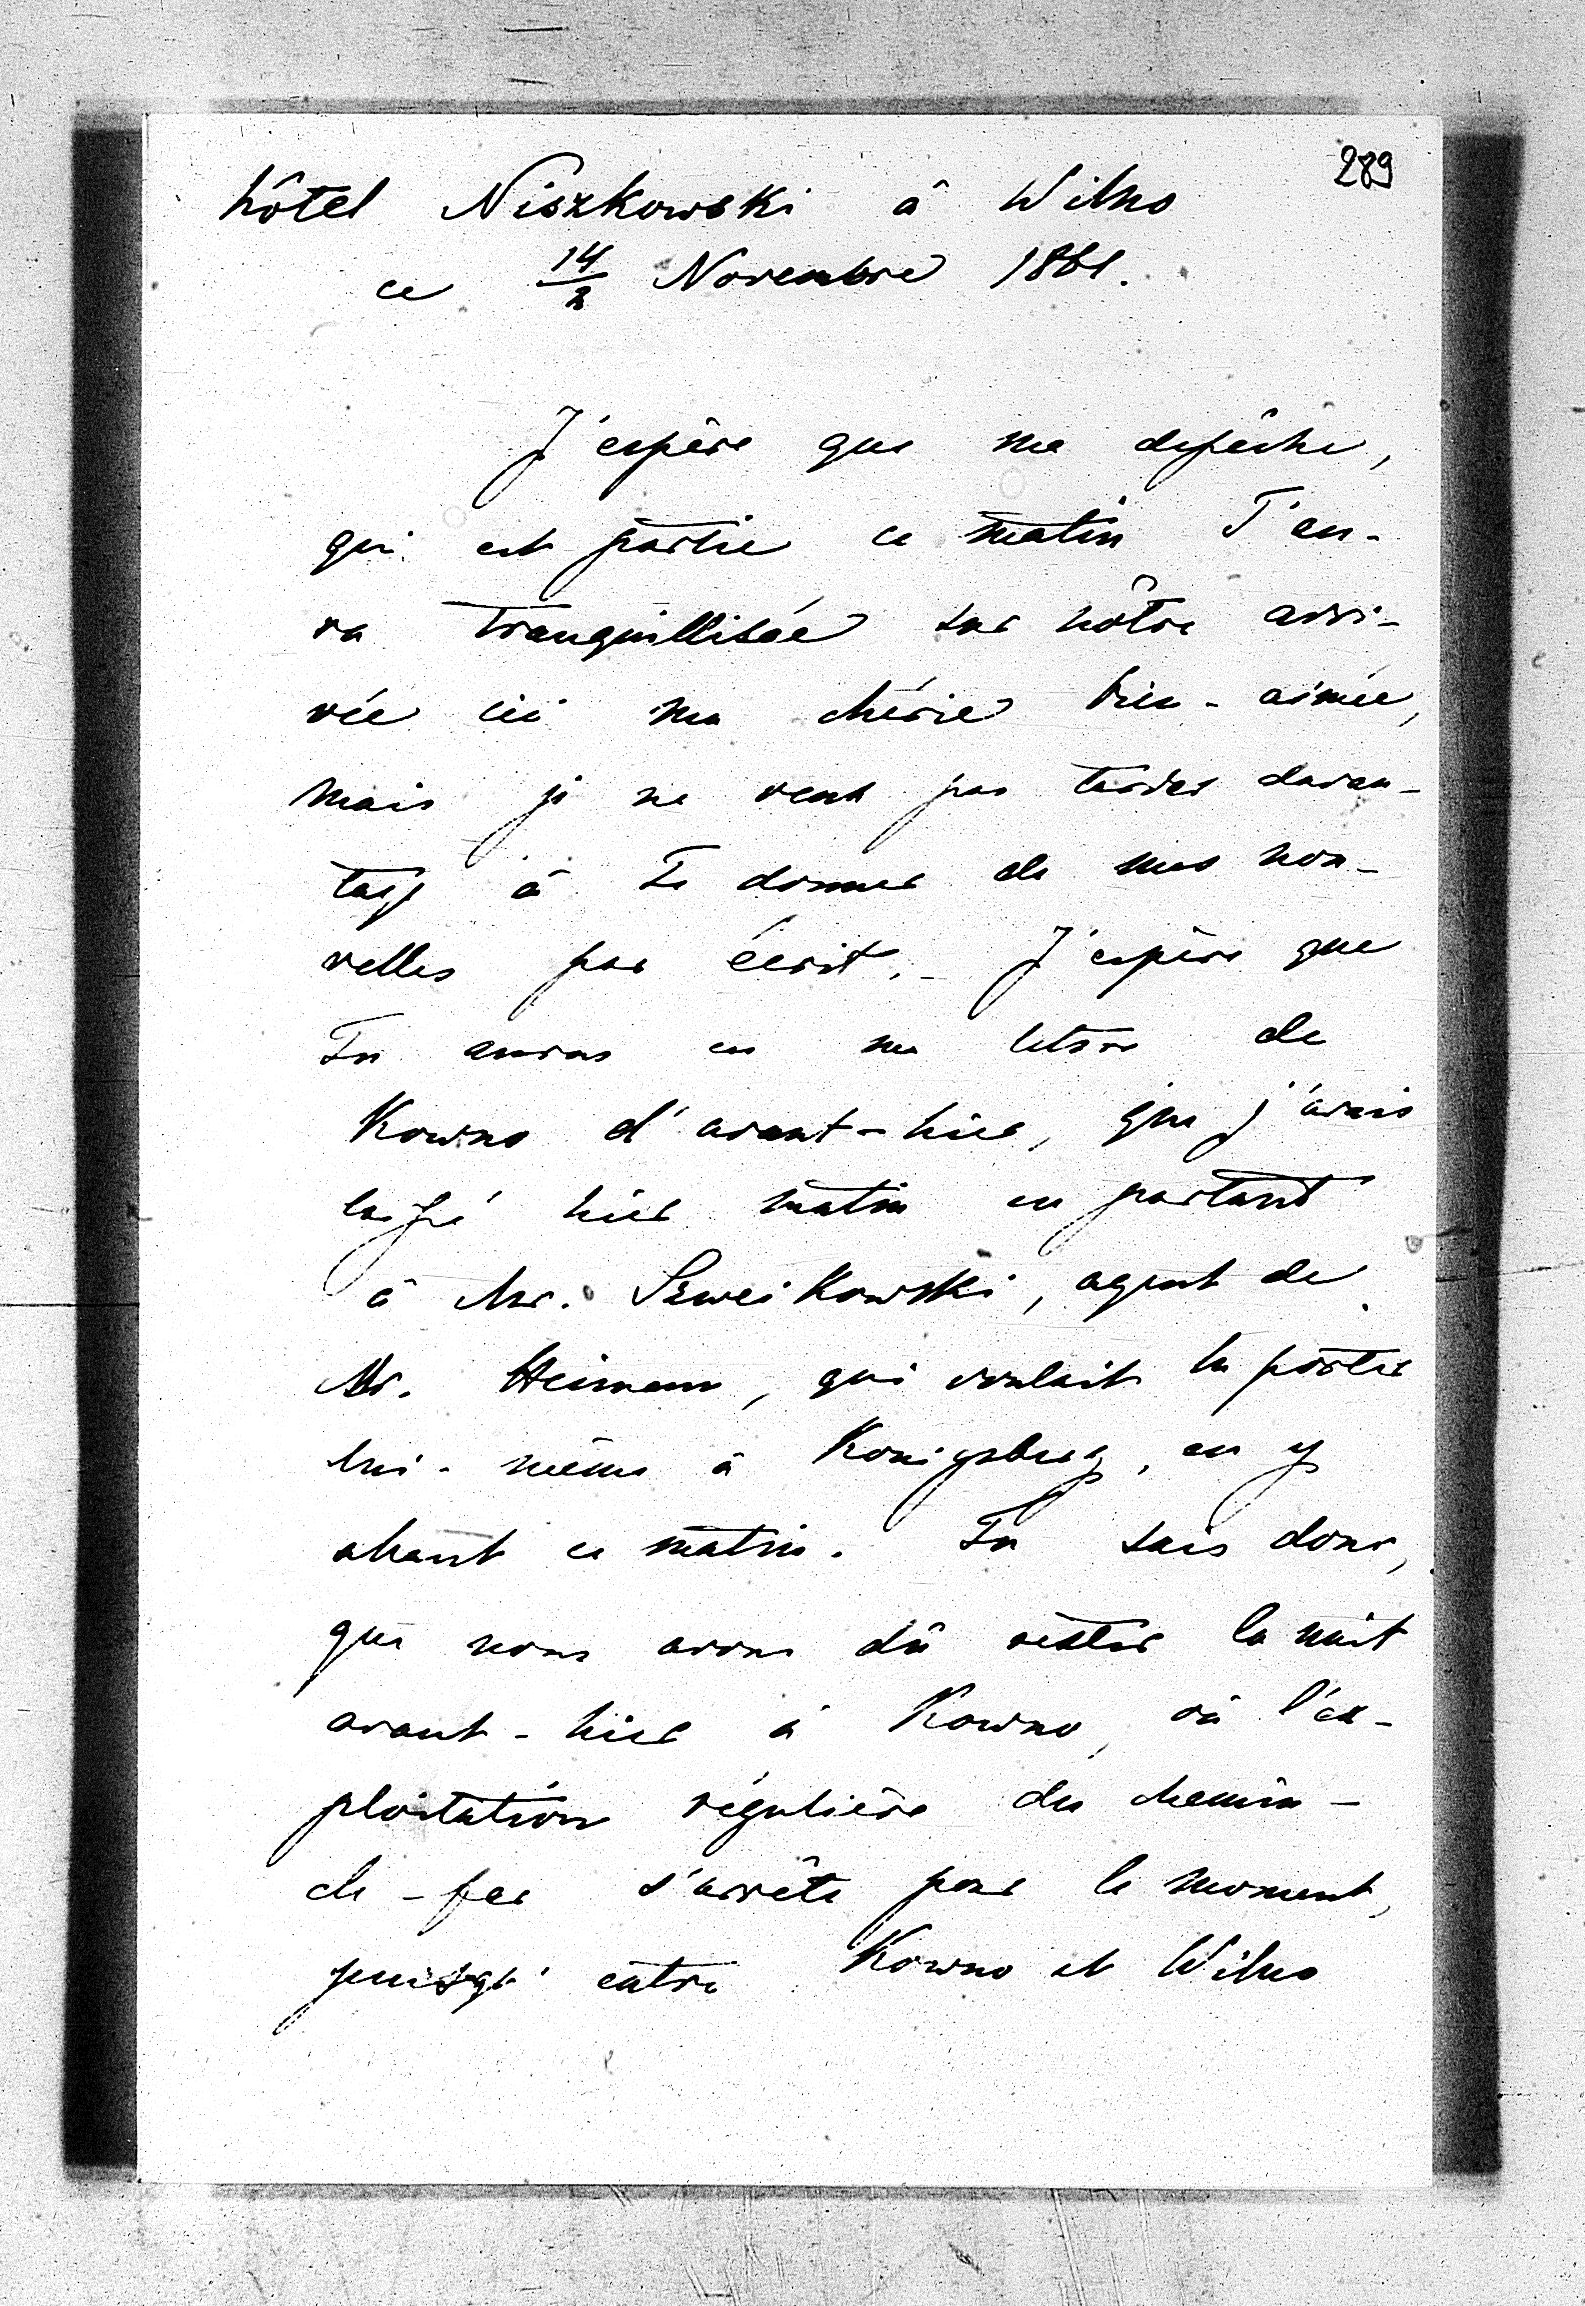 289
hôtel Niszkowski à Wilno
ce 14/2 Novembre 1861.
J'espère que ma depêche,
qui est partie ce matin T'au-
ra tranquillisée sur nôtre arri-
vée ici ma chérie bien-aimée,
mais je ne veux pas tarder davan-
tage à Te donner de mes nou-
velles par écrit. - J'espère que
Tu auras eu ma lettre de
Kowno d'avant-hier, que j'avais
laissé hier matin en partant
à Mr. Szweikowski, agent de
Mr. Heimann, qui voulait la porter
lui-même à Konigsberg, en y
allant ce matin. Tu sais donc,
que nous avons dû rester la nuit
avant-hier à Kowno, où l'ex-
ploitation régulière du chemin-
de-fer s'arrête pour le moment,
puisqu' entre Kowno et Wilno